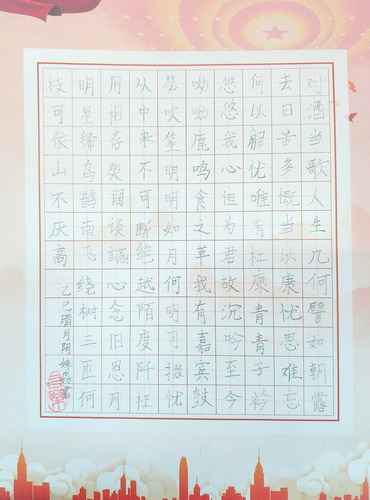 对酒当歌人生几何譬如朝露
去日苦多慨当以康忧思难忘
何以解忧唯有杜康青青子衿
悠悠我心但为君故沉吟至今
呦呦鹿鸣食之苹我有嘉宾鼓
瑟吹笙明明如月何明可掇忧
从中来不可断绝越陌度阡枉
用相存契阔谈讌心念旧恩月
明星稀乌鹊南飞绕树三匝何
枝可依山不厌高
乙巳腊月阴姝书